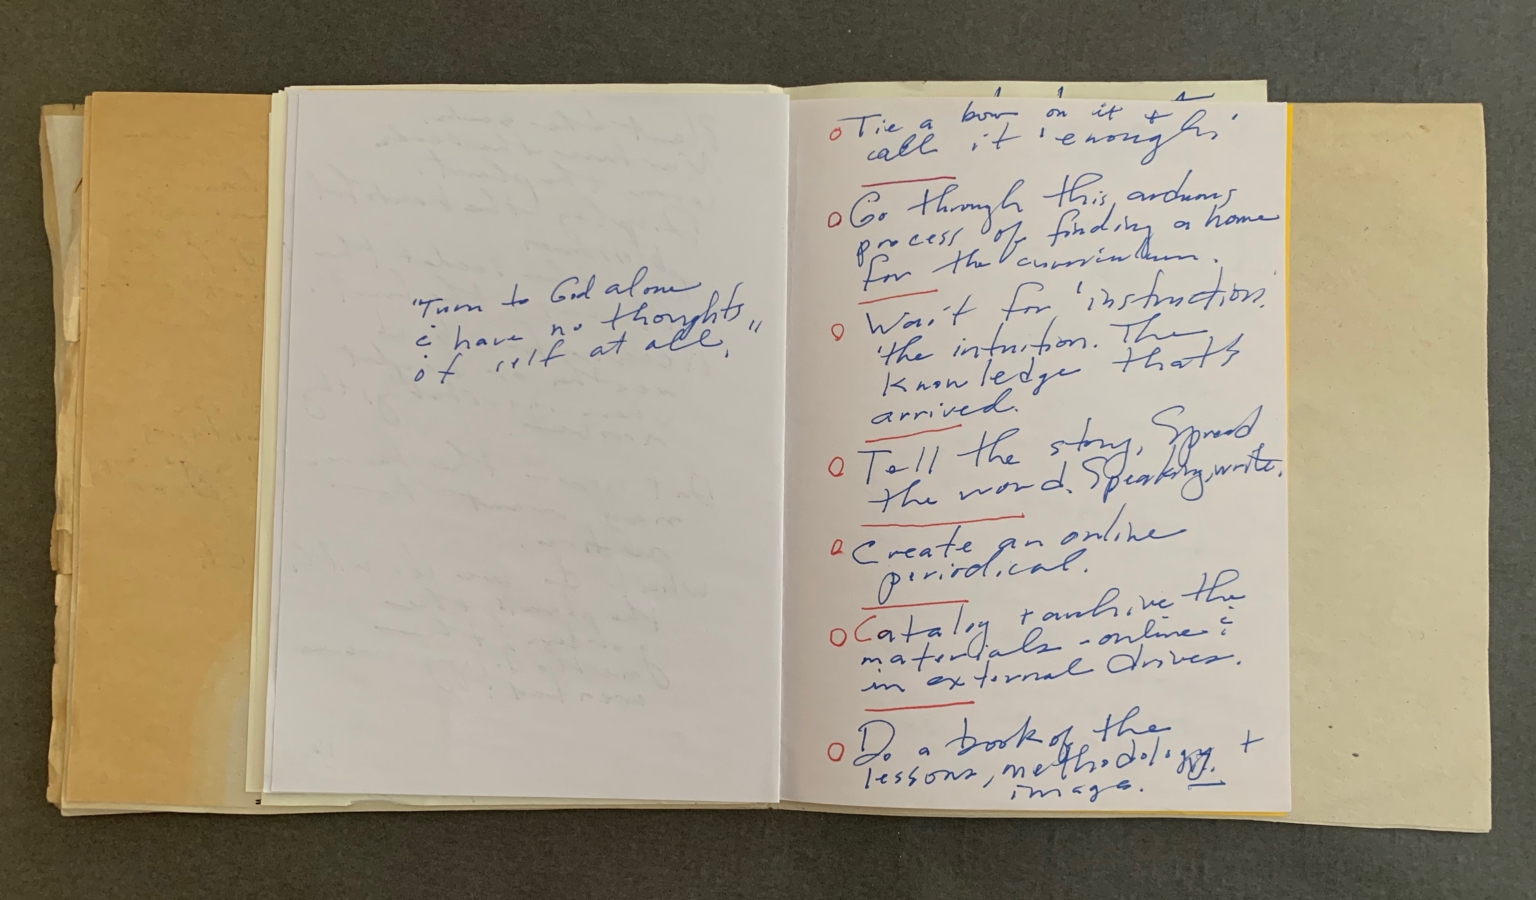 "Turn to God alone
& have no thoughts
of self at all."
Tie a bow on it +
call it 'enough'
Go through this arduous
process of finding a home
for the curriculum.
Wait for 'instruction.'
'the intuition. The
knowledge that's
arrived.
Tell the story, Spread
the word. Speaking, write.
Create an online
periodical.
Catalog + archive the
materials - online &
in external drives.
Do a book of the
lessons, methodology. +
image.